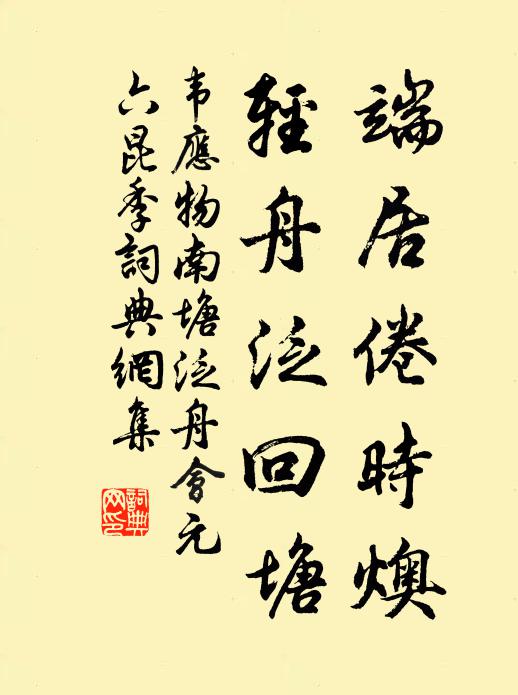 端居倦時燠
輕舟泛回塘
韦應物南塘泛舟會元
六昆季詞典網集
詞典网印